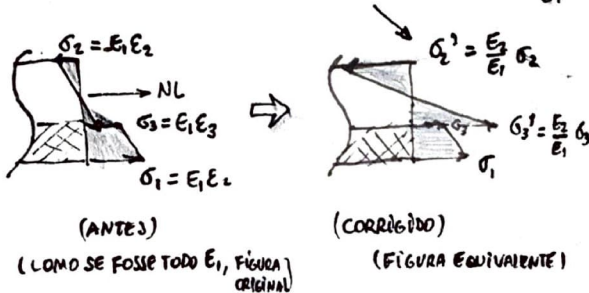 σ₂ = E₁ε₂
NL
σ₃ = E₁ε₃
σ₁ = E₁ε₂
(ANTES)
(COMO SE FOSSE TODO E₁, FIGURA ORIGINAL)
σ₂' = E₂/E₁ σ₂
σ₃
σ₃' = E₂/E₁ σ₃
σ₁
(CORRIGIDO)
(FIGURA EQUIVALENTE)